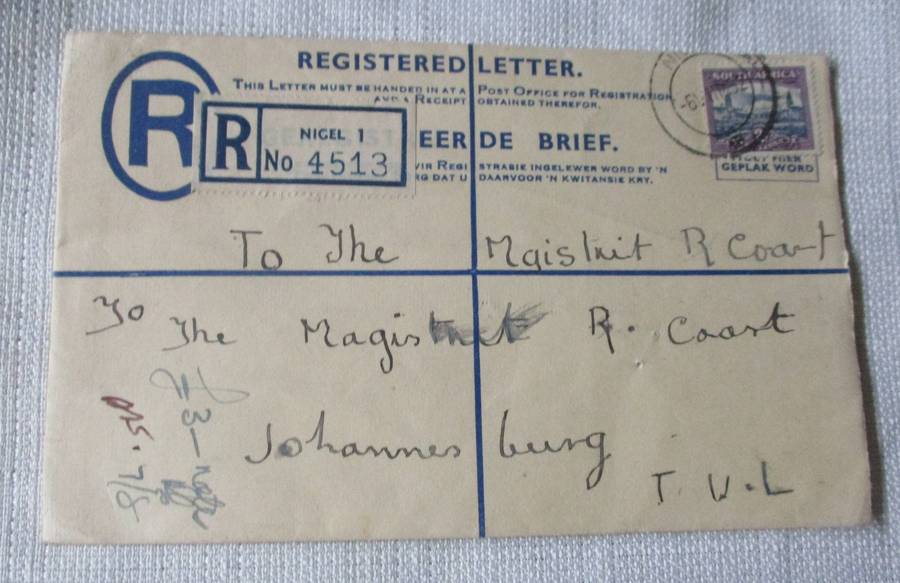 REGISTERED LETTER.
THIS LETTER MUST BE HANDED IN AT A POST OFFICE FOR REGISTRATION
RECEIPT OBTAINED THEREFOR.
R
R NIGEL 1
No 4513
EER DE BRIEF.
VIR REGISTRASIE INGELEWER WORD BY 'N
DAT U DAARVOOR 'N KWITANSIE KRY.
SOUTH AFRICA
GEPLAK WORD
To The Mgistrit R Coart
To The Magistret R. Coart
Johannes burg
T. W. L
£3
7/8